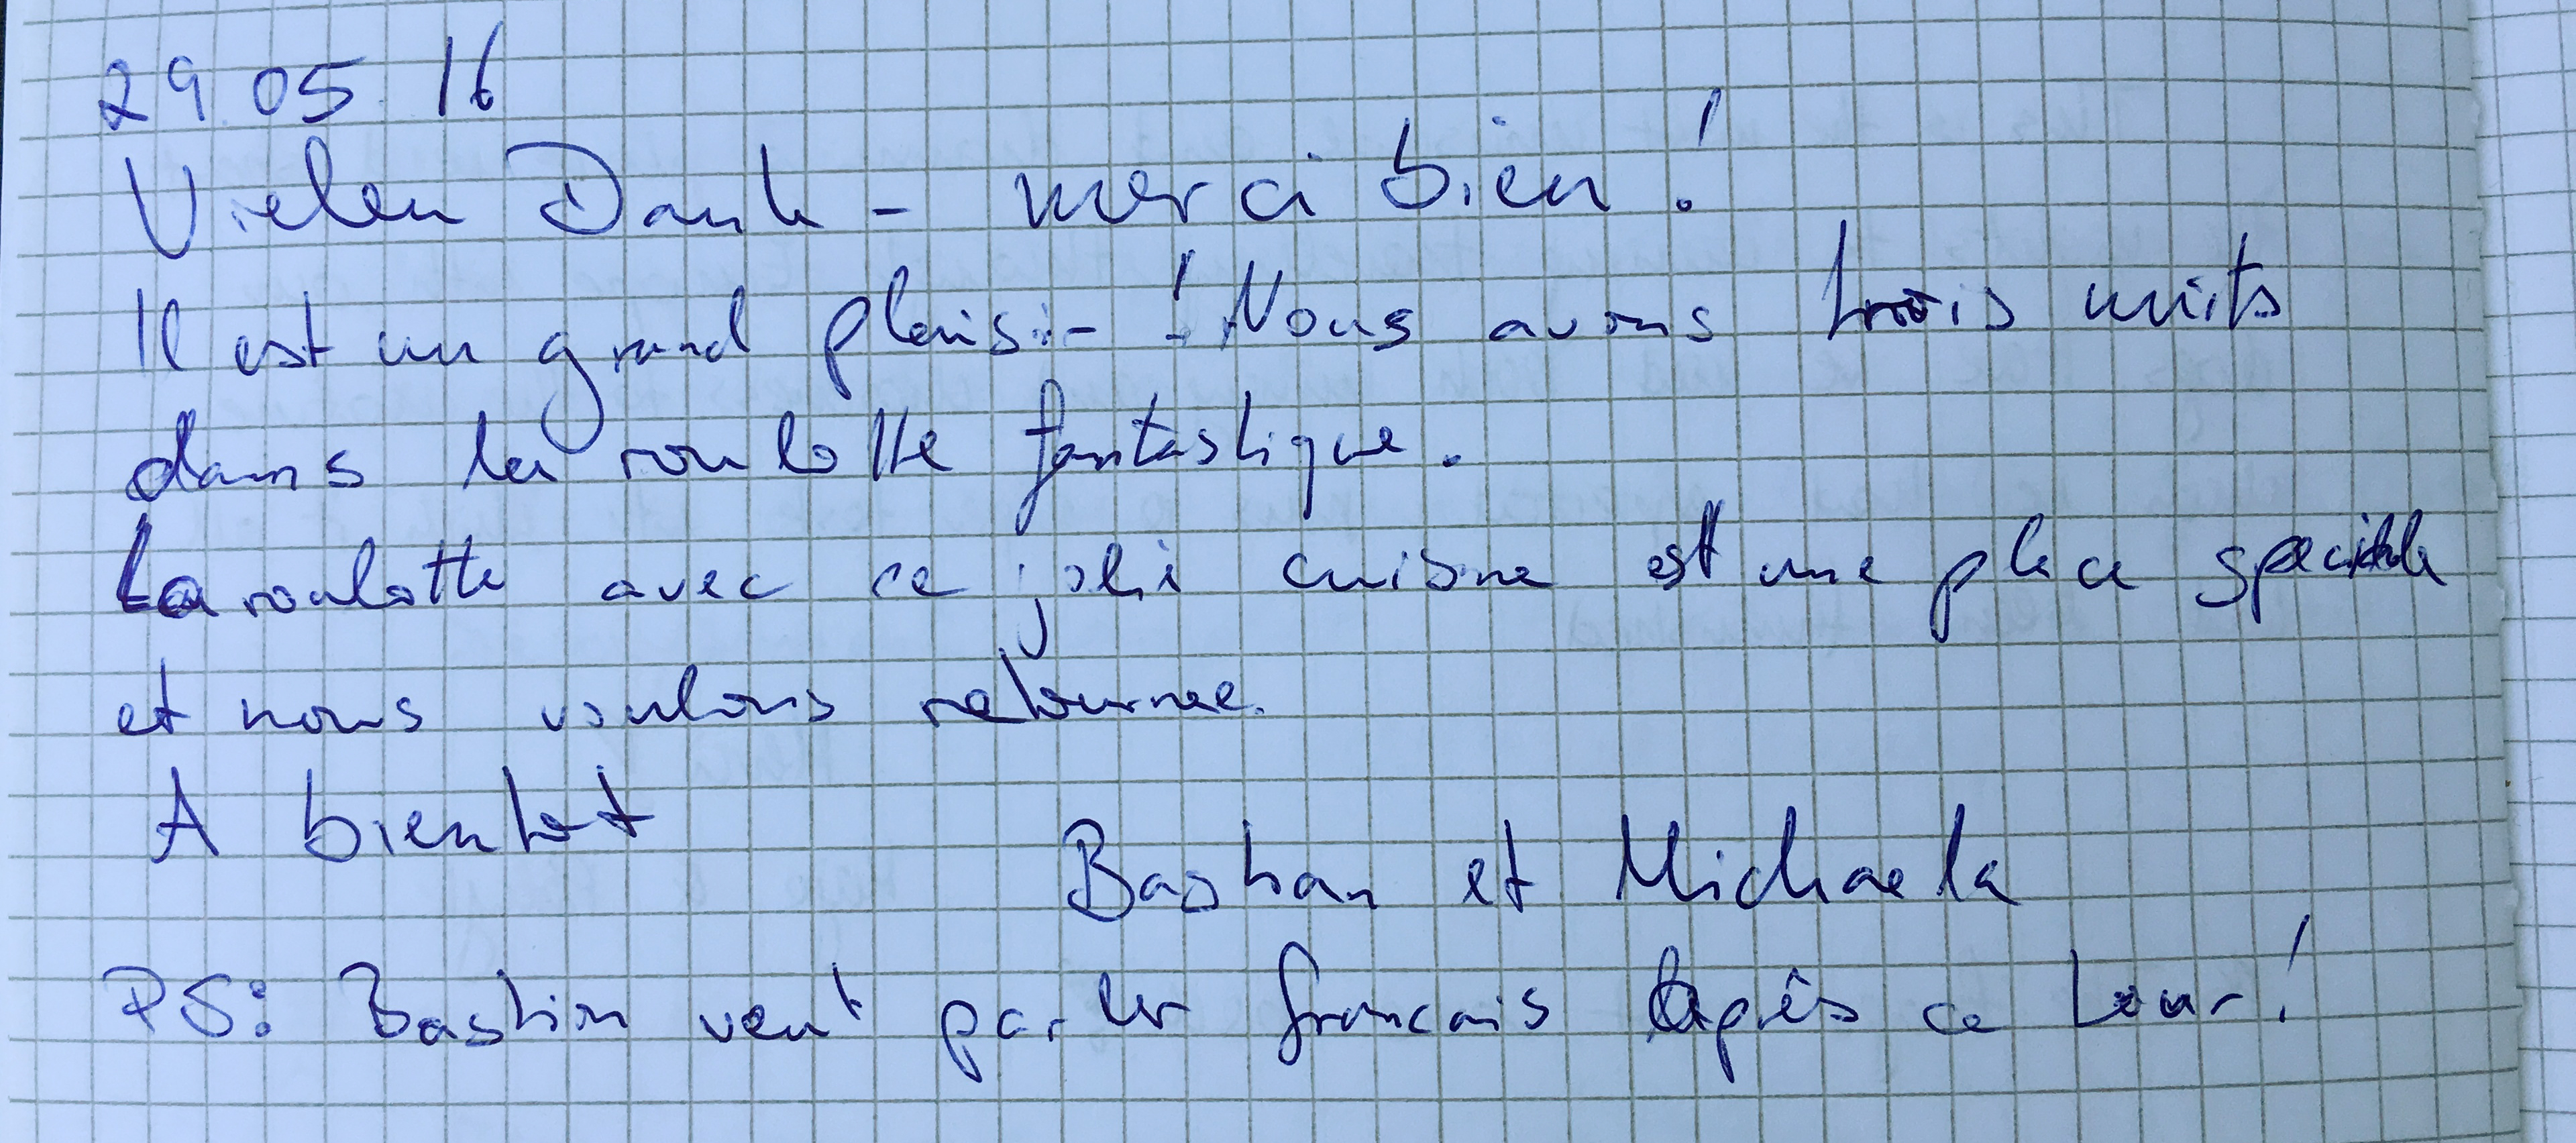 29.05.16
Vielen Dank - merci bien!
Il est un grand plaisir! Nous avons trois nuits
dans la roulotte fantastique.
La roulotte avec ce joli cuisine est une place speciale
et nous voulons retournee.
A bientot
Bastian et Michaela
PS: Bastian veut parler francais après ce tour!